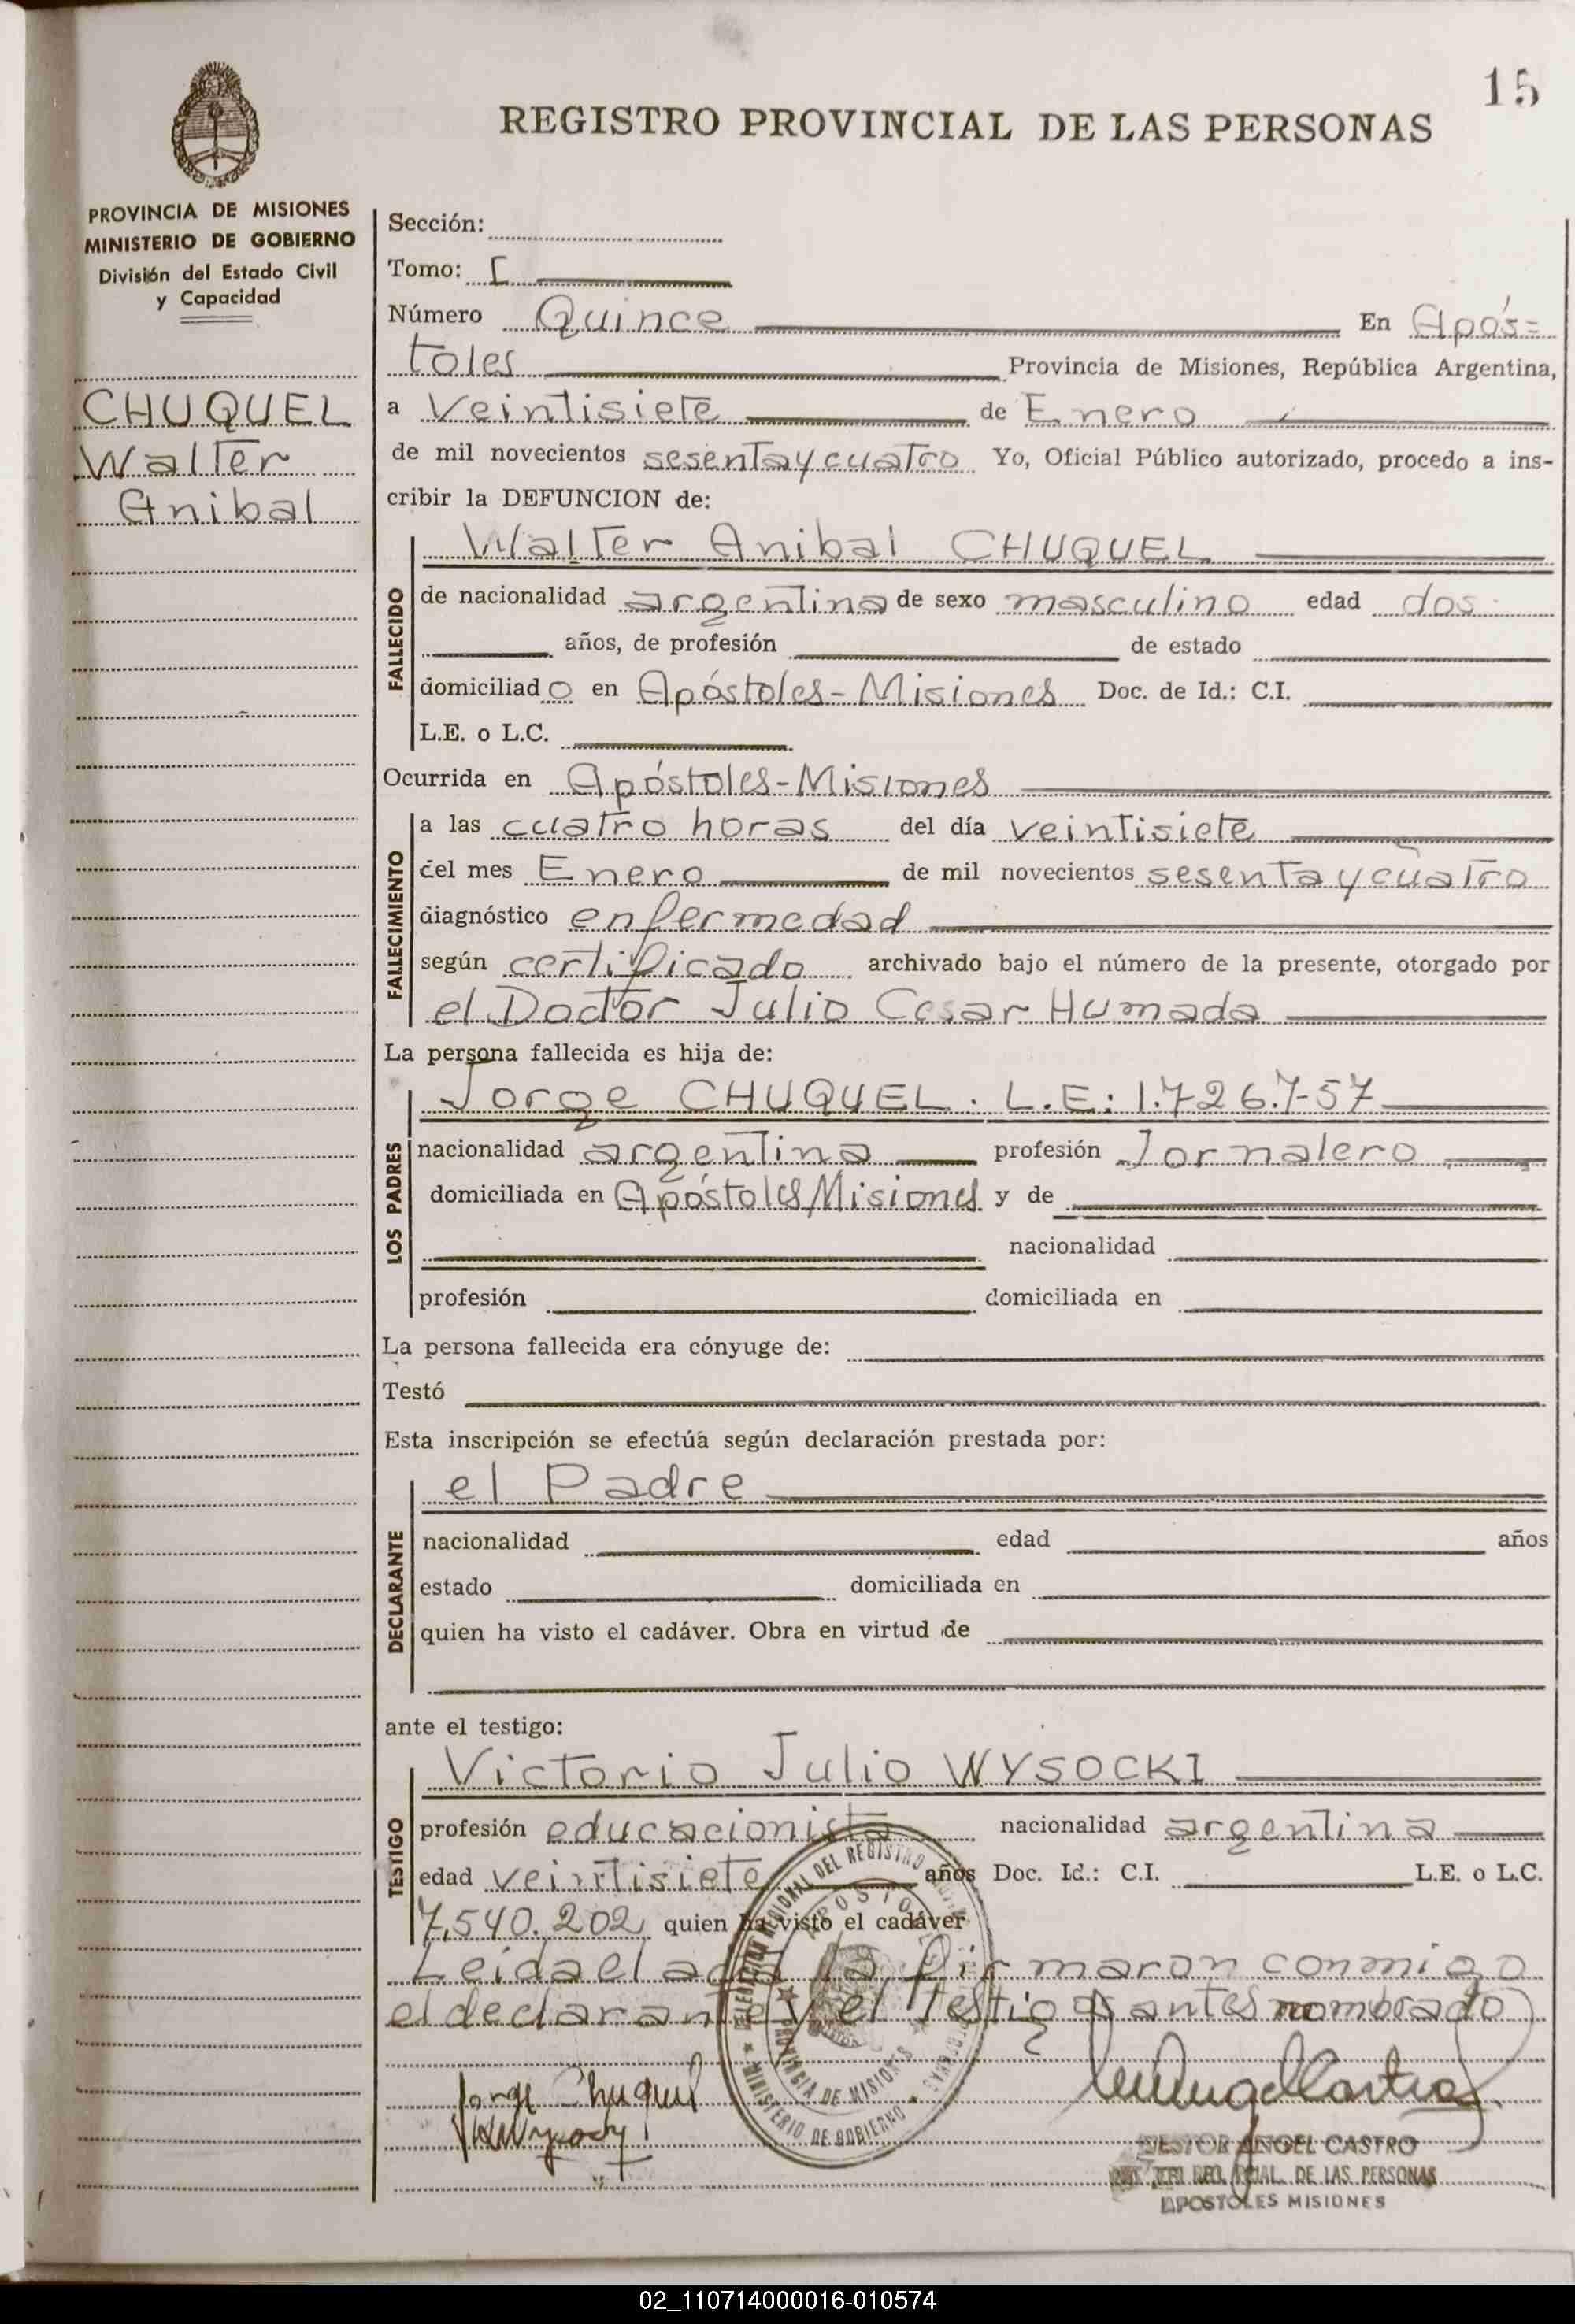 15
REGISTRO PROVINCIAL DE LAS PERSONAS
PROVINCIA DE MISIONES
MINISTERIO DE GOBIERNO
División del Estado Civil
y Capacidad
CHUQUEL
Walter
Anibal
Sección:
Tomo: I
Número Quince En Após=
toles Provincia de Misiones, República Argentina,
a Veintisiete de Enero
de mil novecientos sesentaycuatro Yo, Oficial Público autorizado, procedo a ins-
cribir la DEFUNCION de:
Walter Anibal CHUQUEL
FALLECIDO
de nacionalidad argentina de sexo masculino edad dos
años, de profesión de estado
domiciliado en Apóstoles-Misiones Doc. de Id.: C.I.
L.E. o L.C.
Ocurrida en Apóstoles-Misiones
FALLECIMIENTO
a las cuatro horas del día veintisiete
del mes Enero de mil novecientos sesentaycuatro
diagnóstico enfermedad
según certificado archivado bajo el número de la presente, otorgado por
el Doctor Julio Cesar Humada
La persona fallecida es hija de:
LOS PADRES
Jorge CHUQUEL. L.E: 1.726.757
nacionalidad argentina profesión Jornalero
domiciliada en Apóstoles Misiones y de
nacionalidad
profesión domiciliada en
La persona fallecida era cónyuge de:
Testó
Esta inscripción se efectúa según declaración prestada por:
DECLARANTE
el Padre
nacionalidad edad años
estado domiciliada en
quien ha visto el cadáver. Obra en virtud de
ante el testigo:
TESTIGO
Victorio Julio WYSOCKI
profesión educacionista nacionalidad argentina
edad veintisiete años Doc. Id.: C.I. L.E. o L.C.
7.540.202 quien ha visto el cadáver
Leida el acta la firmaron conmigo
el declarante y el testigo antes nombrado
DELEGACION REGIONAL DEL REGISTRO
APOSTOLES
PROVINCIA DE MISIONES
MINISTERIO DE GOBIERNO
Jorge Chuquel
NESTOR ANGEL CASTRO
DE LAS PERSONAS
APOSTOLES MISIONES
02_110714000016-010574